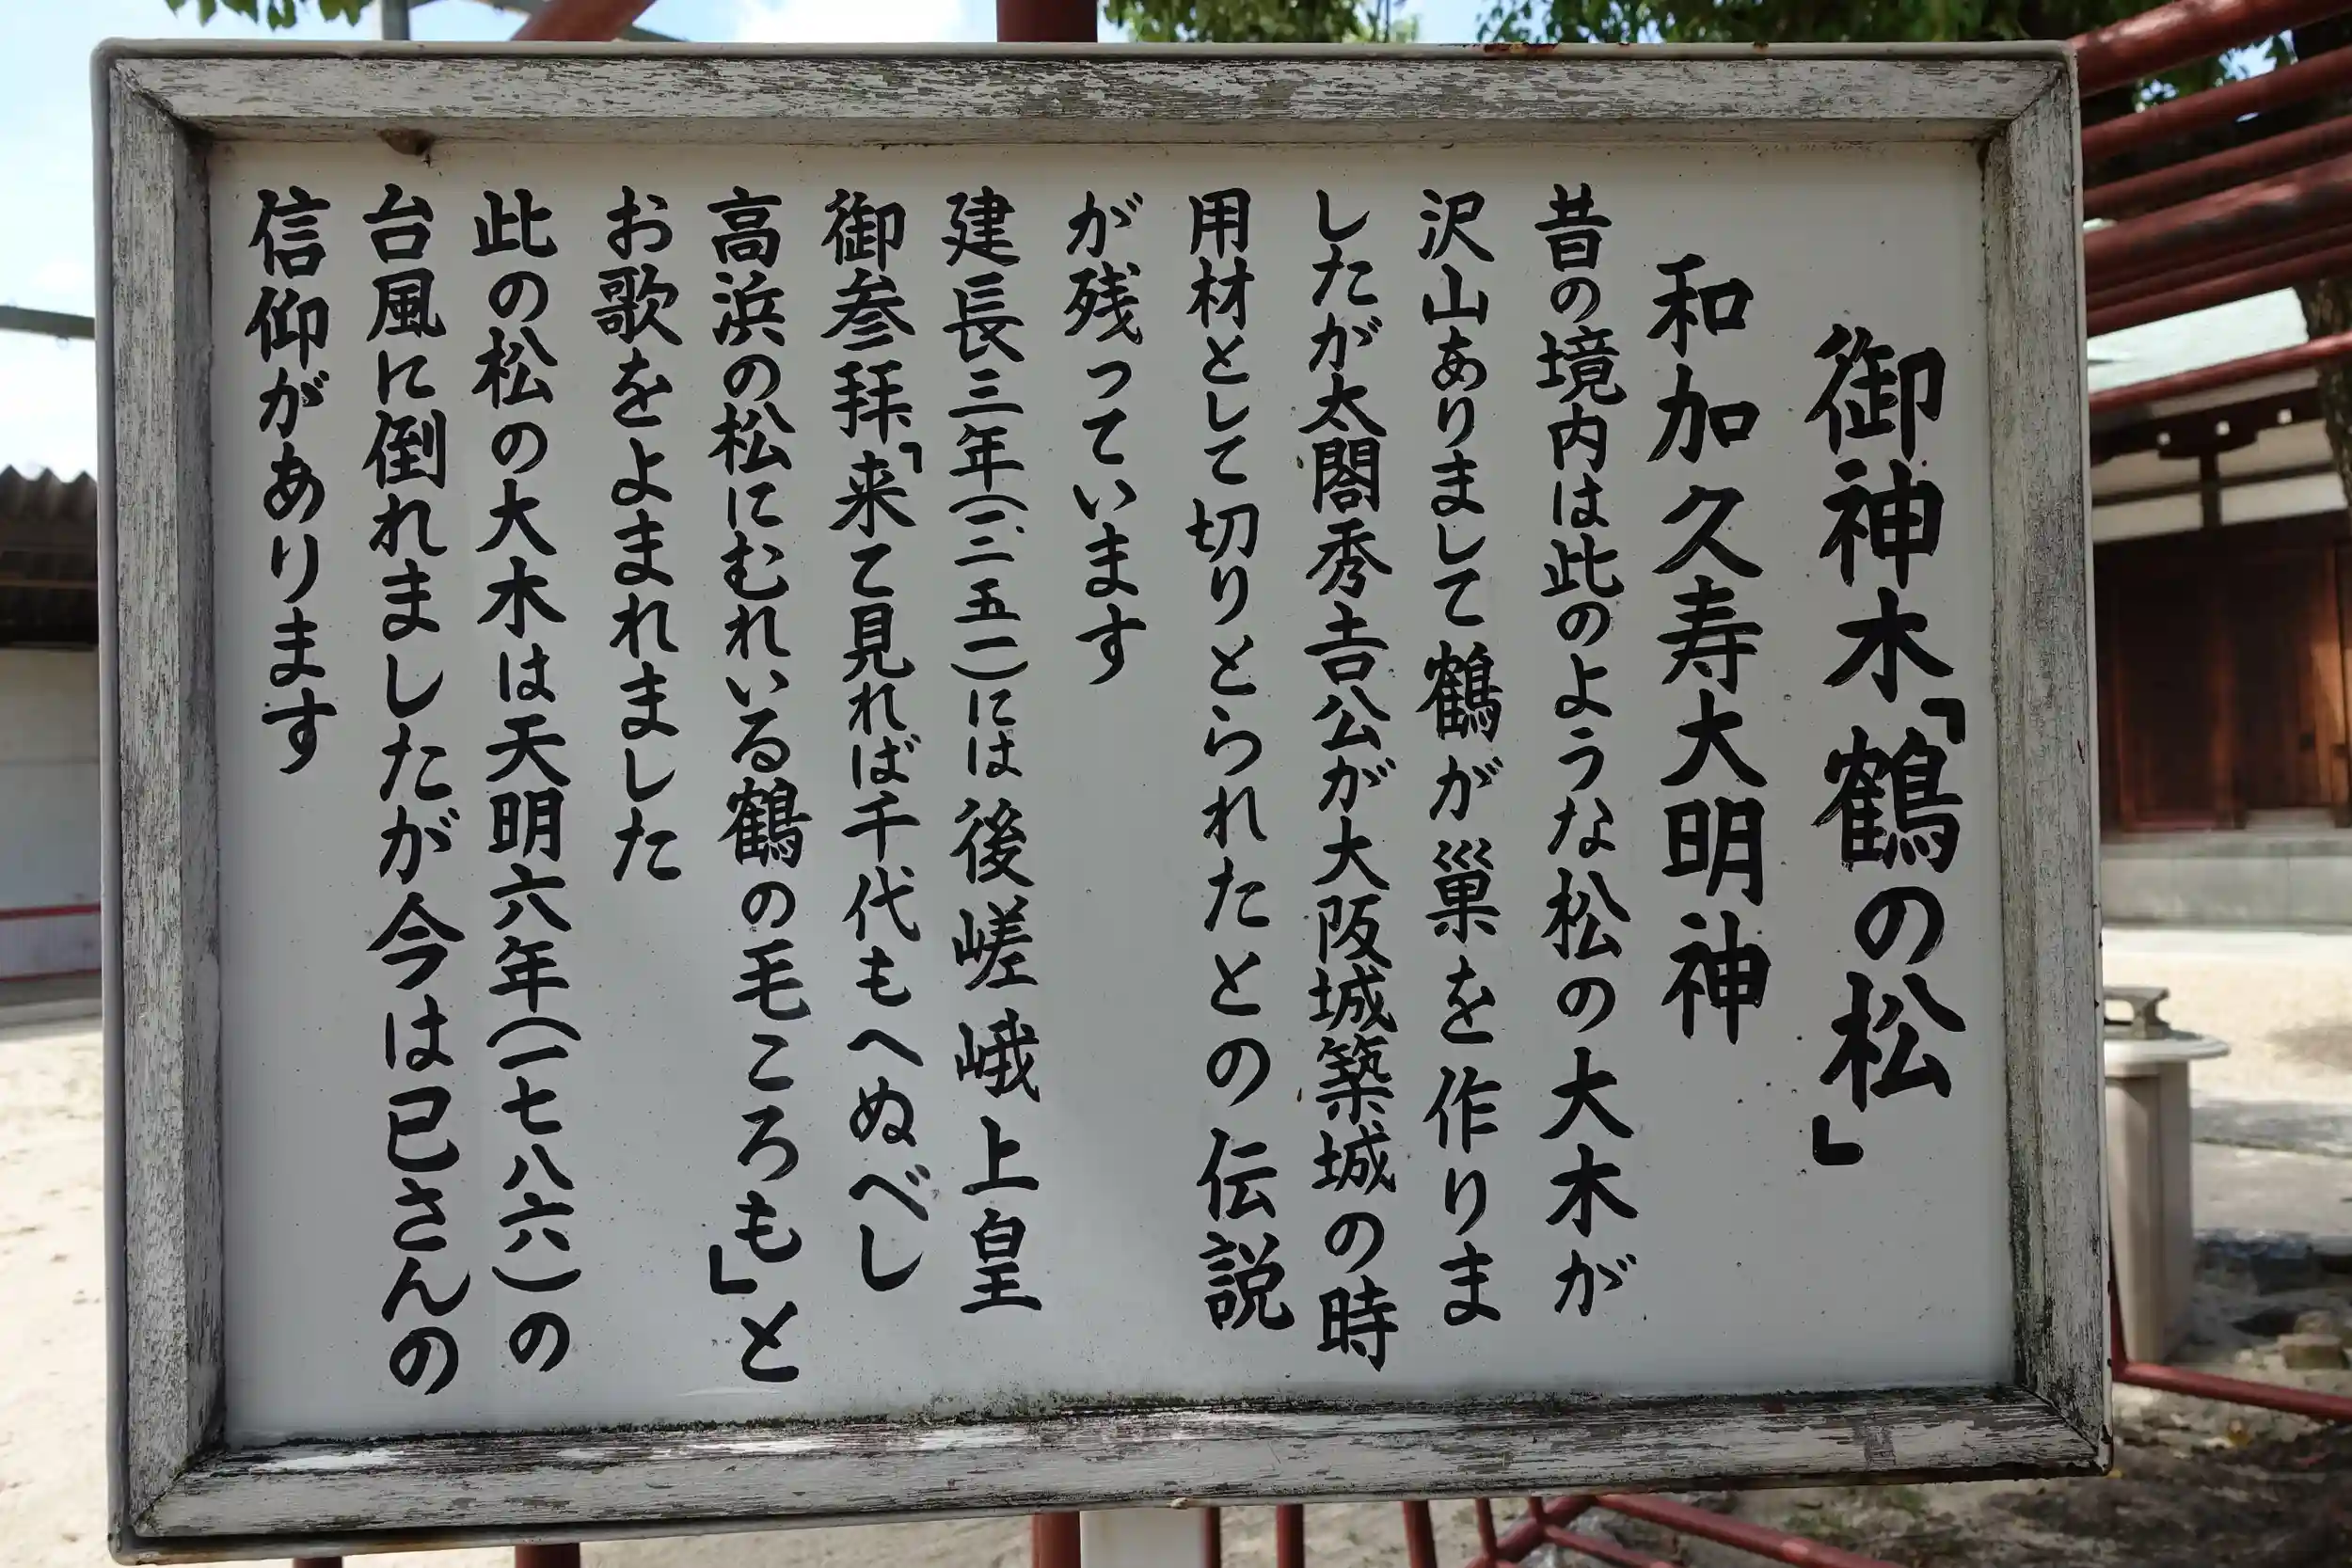 御神木「鶴の松」
和加久寿大明神
昔の境内は此のような松の大木が
沢山ありまして鶴が巣を作りま
したが太閤秀吉公が大阪城築城の時
用材として切りとられたとの伝説
が残っています
建長三年(一、二五一)には後嵯峨上皇
御参拝、「来て見れば千代もへぬべし
高浜の松にむれいる鶴の毛ころも」と
お歌をよまれました
此の松の大木は天明六年(一七八六)の
台風に倒れましたが今は巳さんの
信仰があります